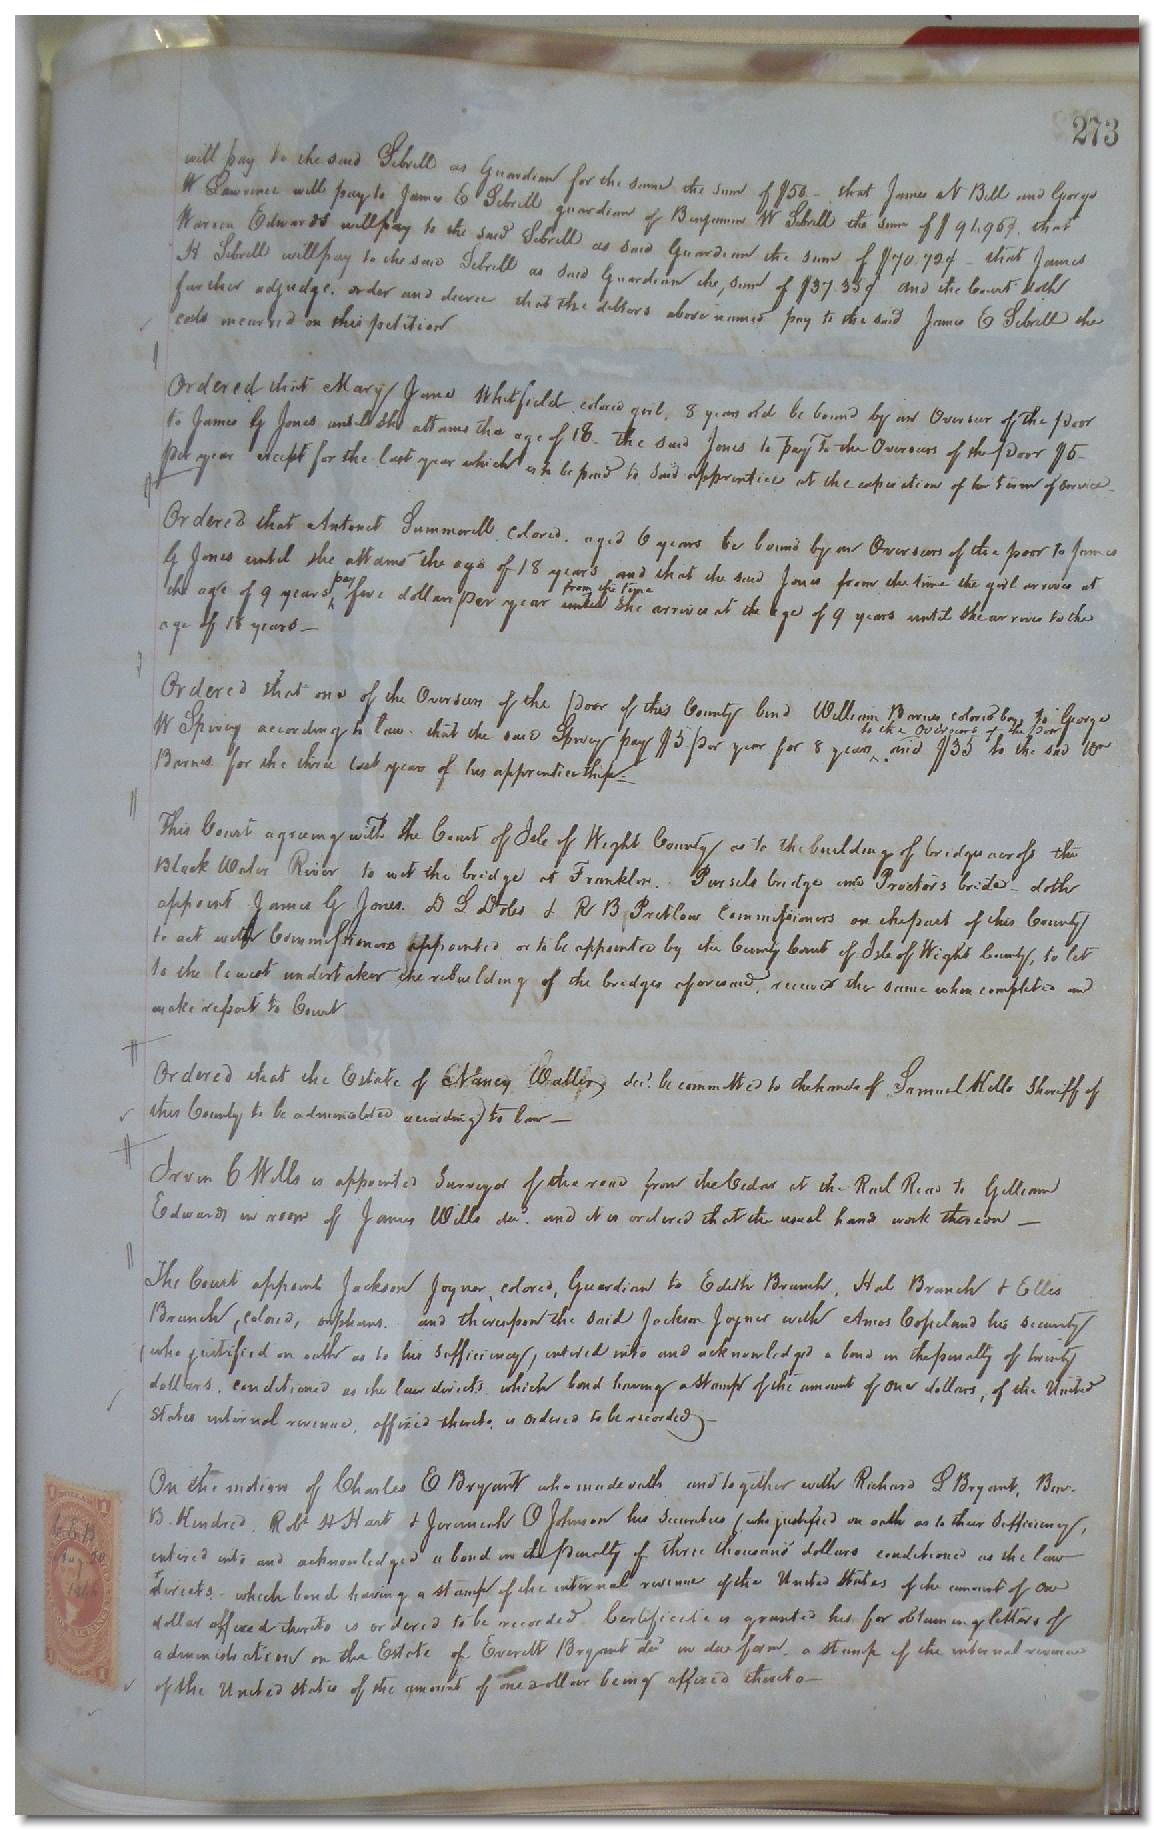 273
will pay to the said Sebrell as Guardian for the same the sum of $50 - that James N Bell and George
W Lawrence will pay to James E Sebrell guardian of Benjamin W Sebrell the sum of $ 91.96¾. that
Warren Edwards will pay to the said Sebrell as said Guardian the sum of $70.72¢ - that James
H Sebrell will pay to the said Sebrell as said Guardian the, sum of $37.33¢ and the Court doth
further adjudge. order and decree that the debtors above named pay to the said James E Sebrell the
costs incurred on this petition
Ordered that Mary Jane Whitfield colored girl, 8 years old be bound by an Overseer of the Poor
to James G Jones until she attains the age of 18 - the said Jones to pay to the Overseers of the Poor $5-
per year except for the last year which is to be paid to said apprentice at the expiration of her term of service -
Ordered that Antonet Summerell, colored. aged 6 years be bound by an Overseers of the poor to James
G Jones until she attains the age of 18 years, and that the said Jones from the time the girl arrives at
the age of 9 years pay five dollars per year from the time she arrives at the age of 9 years until she arrives to the
age of 18 years -
Ordered that one of the Overseers of the Poor of this County bind William Barnes, colored boy, to George
W Spivey according to law. that the said Spivey pay $5 per year for 8 years to the Overseers of the Poor and $35 to the said Wm
Barnes for the three last years of his apprenticeship -
This Court agreeing with the Court of Isle of Wight County as to the building of bridges across the
Black Water River to wit the bridge at Franklin. Pursels bridge and Proctors bridge - doth
appoint James G Jones. D S Doles & R B Pretlow Commissioners on the part of this County
to act with Commissioners appointed or to be appointed by the County Court of Isle of Wight County, to let
to the lowest undertaker the rebuilding of the bridges aforesaid, receive the same when completed and
make report to Court
Ordered that the Estate of Nancy Waller, decd. be committed to the hands of Samuel Kello Sheriff of
this County to be administered according to law -
Irvin C Wills is appointed Surveyor of the road from the Cedar at the Rail Road to Gilliam
Edwards in room of James Wills decd. and it is ordered that the usual hands work thereon -
The Court appoint Jackson Joyner, colored, Guardian to Edith Branch, Hal Branch & Elles
Branch, colored, orphans. and thereupon the said Jackson Joyner with Amos Copeland his security
(who justified on oath as to his sufficiency, entered into and acknowledged a bond in the penalty of twenty
dollars, conditioned as the law directs, which bond having a stamp of the amount of one dollars, of the United
States internal revenue, affixed thereto, is ordered to be recorded -
On the motion of Charles E Bryant who made oath and together with Richard S Bryant, Benj.
B. Kindred, Robt H Hart & Jeremiah O Johnson his securities (who justified on oath as to their sufficiency,
entered into and acknowledged a bond in the penalty of three thousand dollars conditioned as the law
directs - which bond having a stamp of the internal revenue of the United States of the amount of one
dollar affixed thereto is ordered to be recorded. Certificate is granted him for obtaining letters of
administration on the Estate of Everett Bryant decd in due form. a stamp of the internal revenue
of the United States of the amount of one dollar being affixed thereto -
C.E.B.
Aug 20